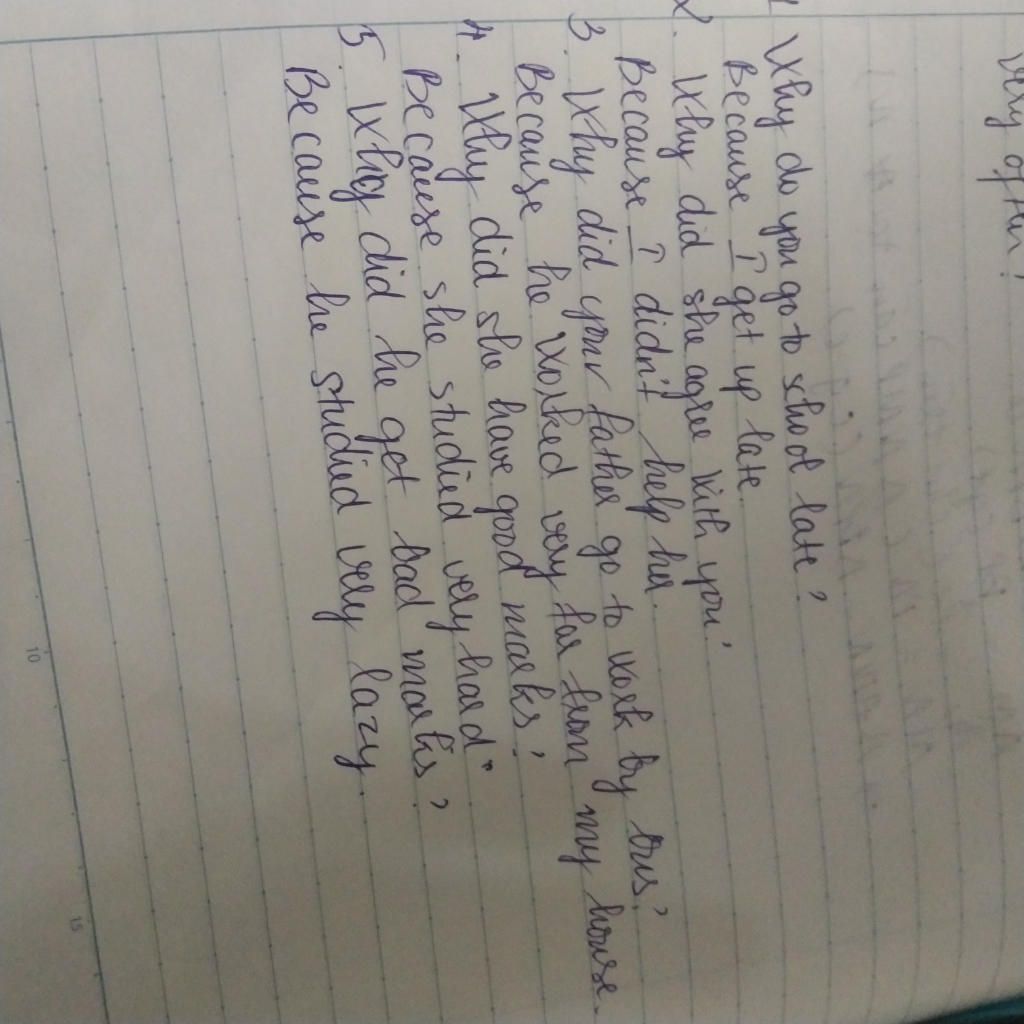 very often?
1 Why do you go to school late?
Because I get up late
2. Why did she agree with you?
Because I didn't help her.
3. Why did your father go to work by bus?
Because he worked very far from my house.
4. Why did she have good marks?
Because she studied very hard.
5. Why did he get bad marks?
Because he studied very lazy.
10
15